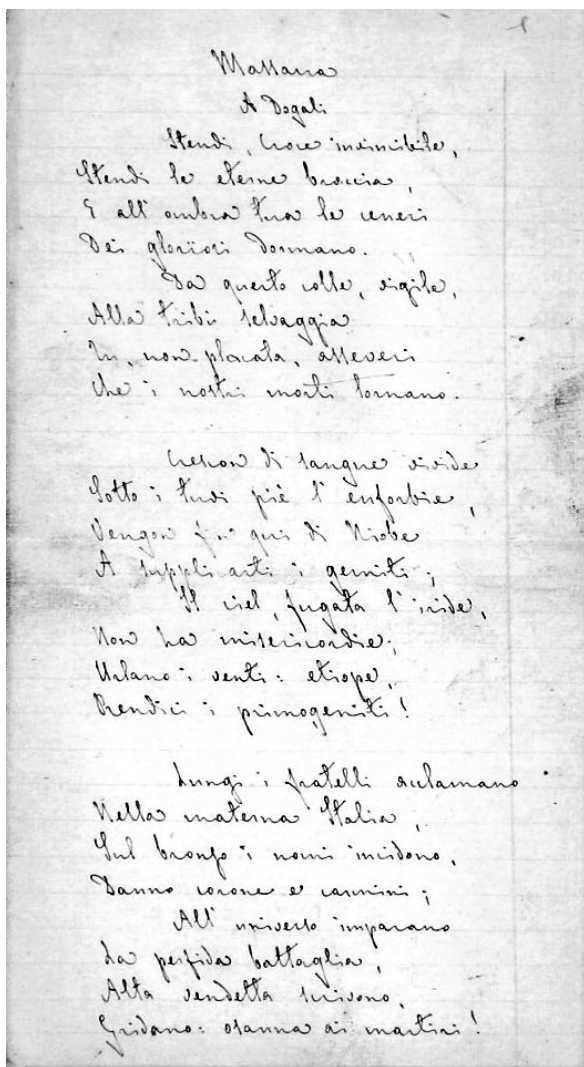 Massaua
A Dogali
Stendi, Croce invincibile,
Stendi le eterne braccia,
E all'ombra tua le ceneri
Dei gloriosi dormano.
Da questo colle, vigile,
Alla tribù selvaggia
Tu, non placata, asseveri
Che i nostri morti tornano.
Crescon di sangue vivide
Sotto i tuoi piè l'euforbie,
Vengon fin qui di Niobe
A supplicarti i gemiti;
Il ciel, fugata l'iride,
Non ha misericordie;
Urlano i venti: etiope,
Rendici i primogeniti!
Lungi i fratelli acclamano
Nella materna Italia,
Sul bronzo i nomi incidono,
Danno corone e carmini;
All'universo imparano
La perfida battaglia,
Alta vendetta scrivono,
Gridano: osanna ai martiri!